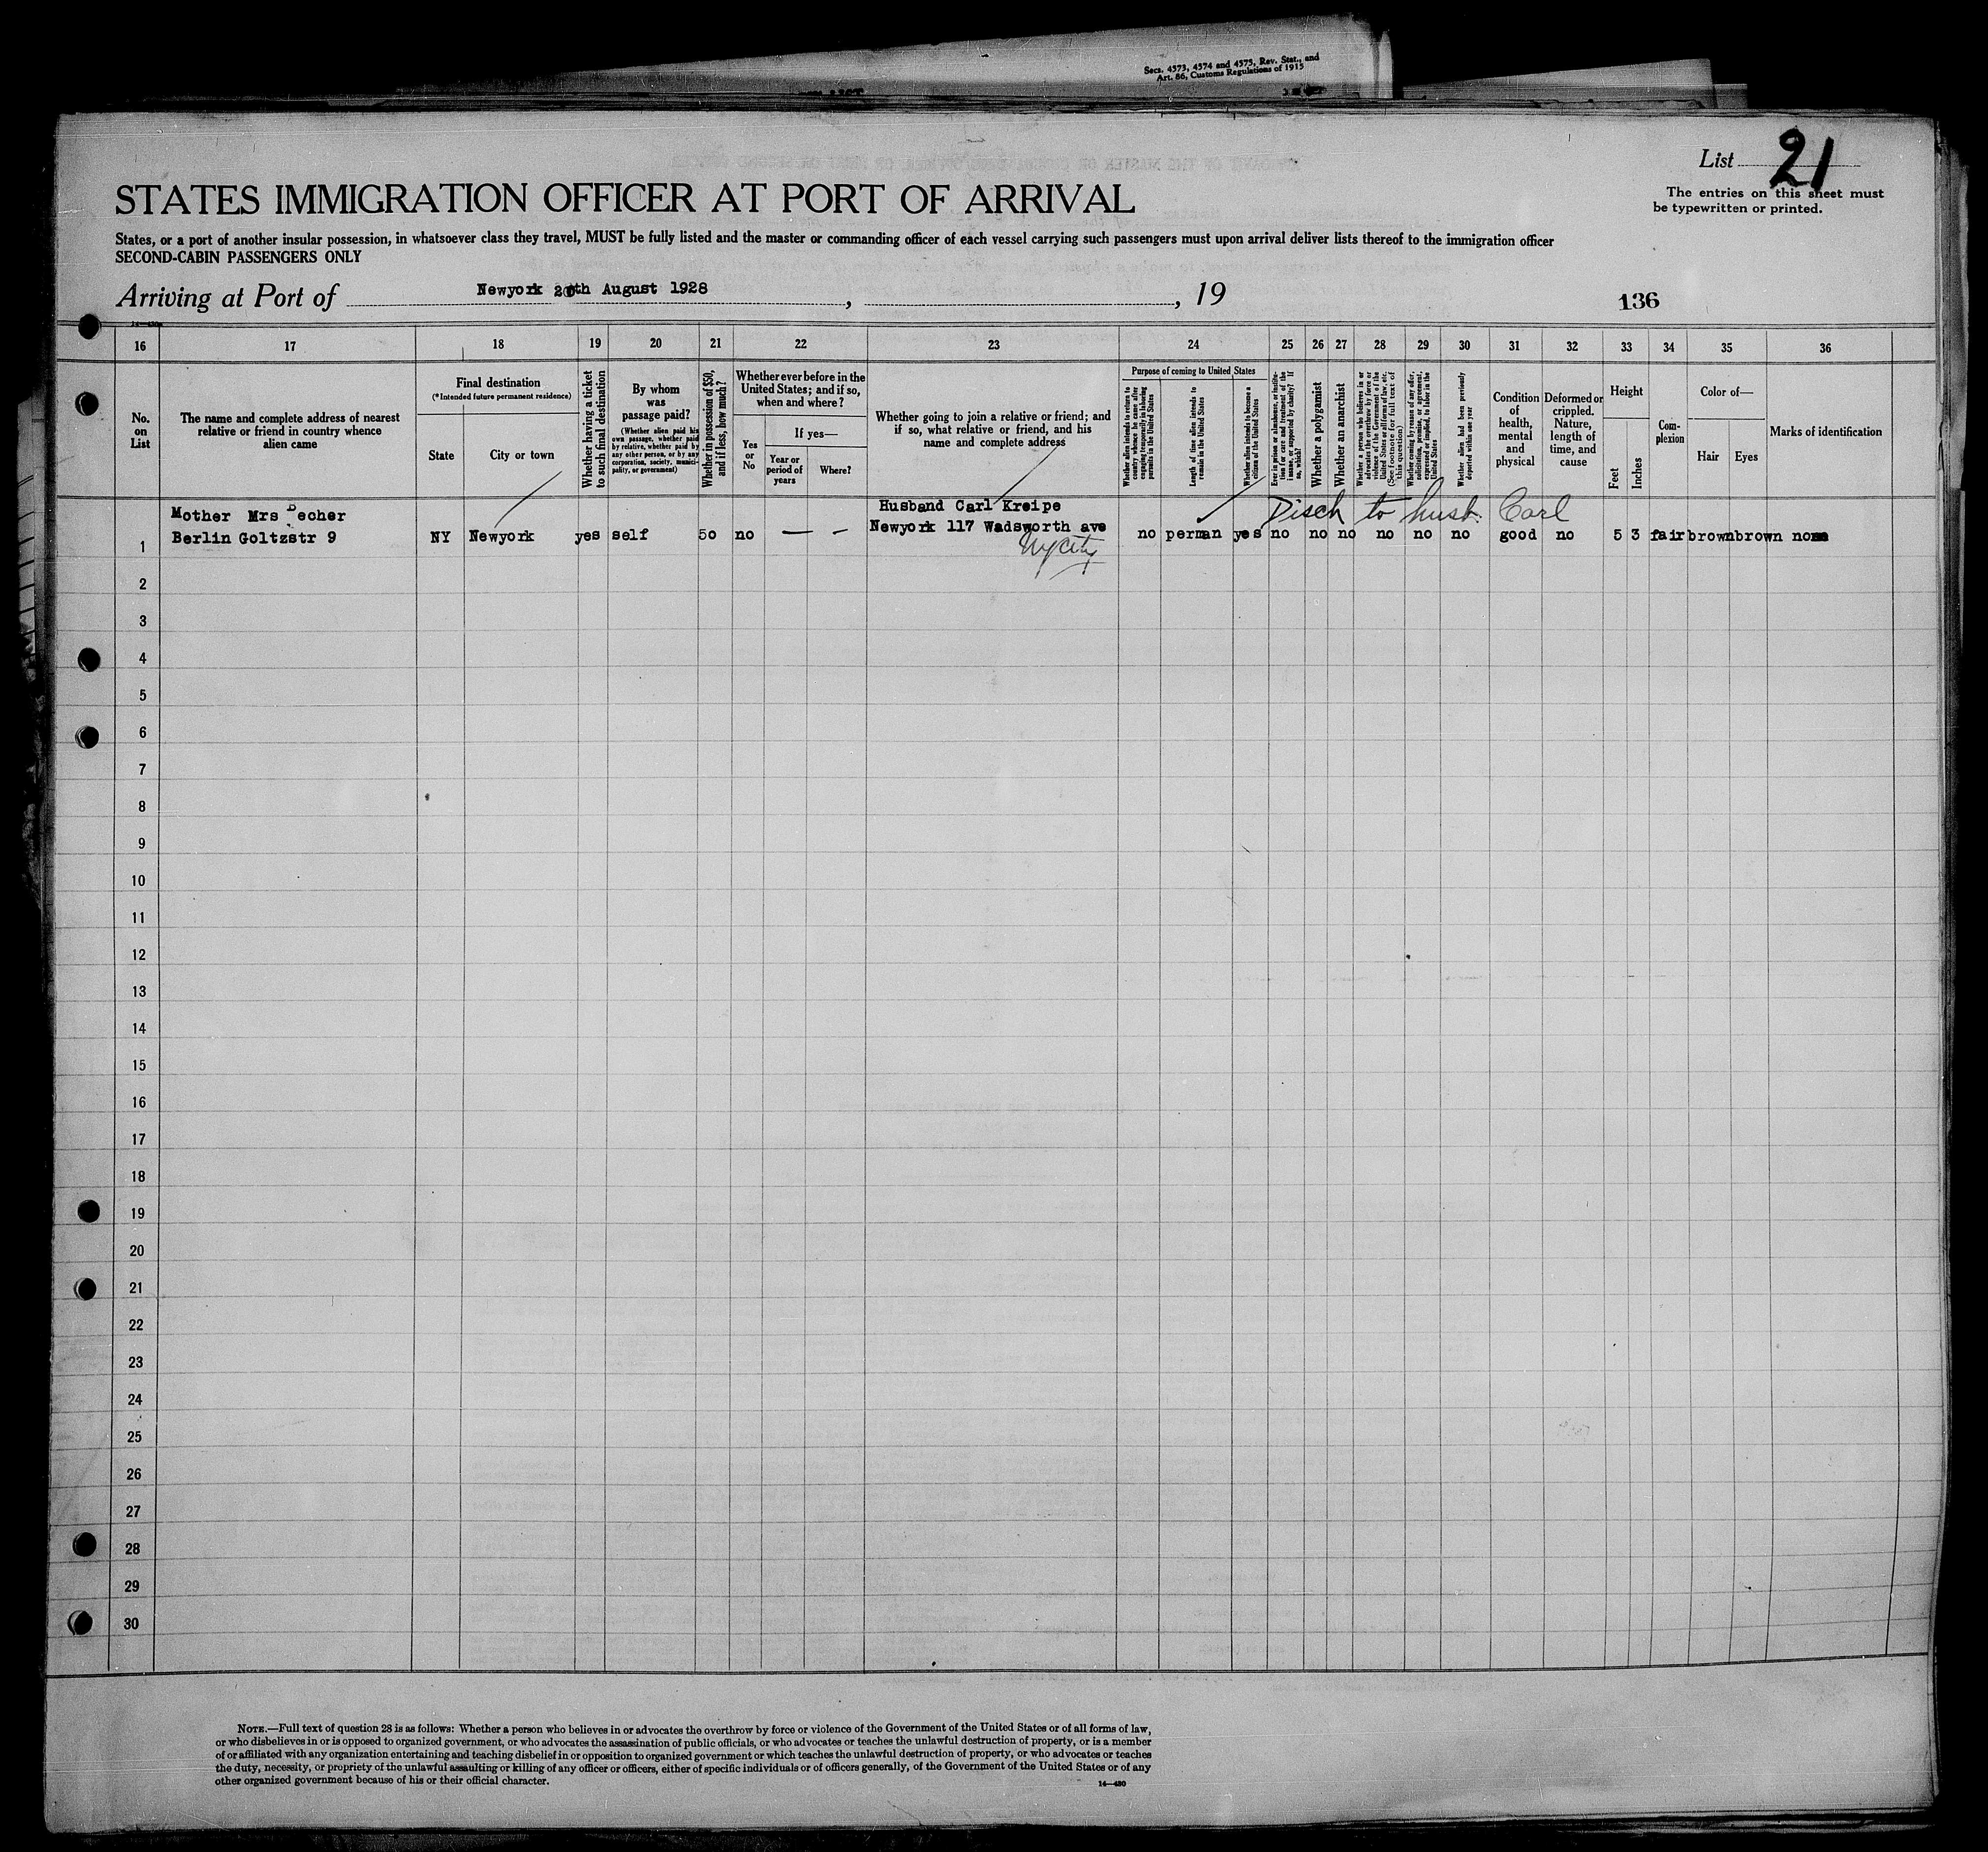 Secs. 4573, 4574 and 4575, Rev. Stat., and
Art. 86, Customs Regulations of 1915
List 21
The entries on this sheet must
be typewritten or printed.
STATES IMMIGRATION OFFICER AT PORT OF ARRIVAL
States, or a port of another insular possession, in whatsoever class they travel, MUST be fully listed and the master or commanding officer of each vessel carrying such passengers must upon arrival deliver lists thereof to the immigration officer
SECOND-CABIN PASSENGERS ONLY
Arriving at Port of Newyork 20th August 1928, , 19
136
14-430
16 17 18 19 20 21 22 23 24 25 26 27 28 29 30 31 32 33 34 35 36
No.
on
List
The name and complete address of nearest
relative or friend in country whence
alien came
Final destination
(*Intended future permanent residence)
State
City or town
Whether having a ticket
to such final destination
By whom
was
passage paid?
(Whether alien paid his
own passage, whether paid
by relative, whether paid by
any other person, or by any
corporation, society, munici-
pality, or government)
Whether in possession of $50,
and if less, how much?
Whether ever before in the
United States; and if so,
when and where?
Yes
or
No
If yes—
Year or
period of
years
Where?
Whether going to join a relative or friend; and
if so, what relative or friend, and his
name and complete address
Purpose of coming to United States
Whether alien intends to return to
country whence he came after
engaging temporarily in laboring
pursuits in the United States
Length of time alien intends to
remain in the United States
Whether alien intends to become a
citizen of the United States
Ever in prison or almshouse, or institu-
tion for care and treatment of the
insane, or supported by charity? If
so, which?
Whether a polygamist
Whether an anarchist
Whether a person who believes in or
advocates the overthrow by force or
violence of the Government of the
United States or all forms of law, etc.
(See footnote for full text of
this question)
Whether coming by reason of any offer,
solicitation, promise, or agreement,
expressed or implied, to labor in the
United States
Whether alien had been previously
deported within one year
Condition
of
health,
mental
and
physical
Deformed or
crippled.
Nature,
length of
time, and
cause
Height
Feet
Inches
Com-
plexion
Color of—
Hair
Eyes
Marks of identification
Mother Mrs Pecher
Husband Carl Kreipe
Disch to husb. Carl
1 Berlin Goltzstr 9 NY Newyork yes self 50 no — — Newyork 117 Wadsworth ave no perman yes no no no no no no good no 5 3 fair brown brown none
NyCity
2
3
4
5
6
7
8
9
10
11
12
13
14
15
16
17
18
19
20
21
22
23
24
25
26
27
28
29
30
NOTE.—Full text of question 28 is as follows: Whether a person who believes in or advocates the overthrow by force or violence of the Government of the United States or of all forms of law,
or who disbelieves in or is opposed to organized government, or who advocates the assassination of public officials, or who advocates or teaches the unlawful destruction of property, or is a member
of or affiliated with any organization entertaining and teaching disbelief in or opposition to organized government or which teaches the unlawful destruction of property, or who advocates or teaches
the duty, necessity, or propriety of the unlawful assaulting or killing of any officer or officers, either of specific individuals or of officers generally, of the Government of the United States or of any
other organized government because of his or their official character.
14—430